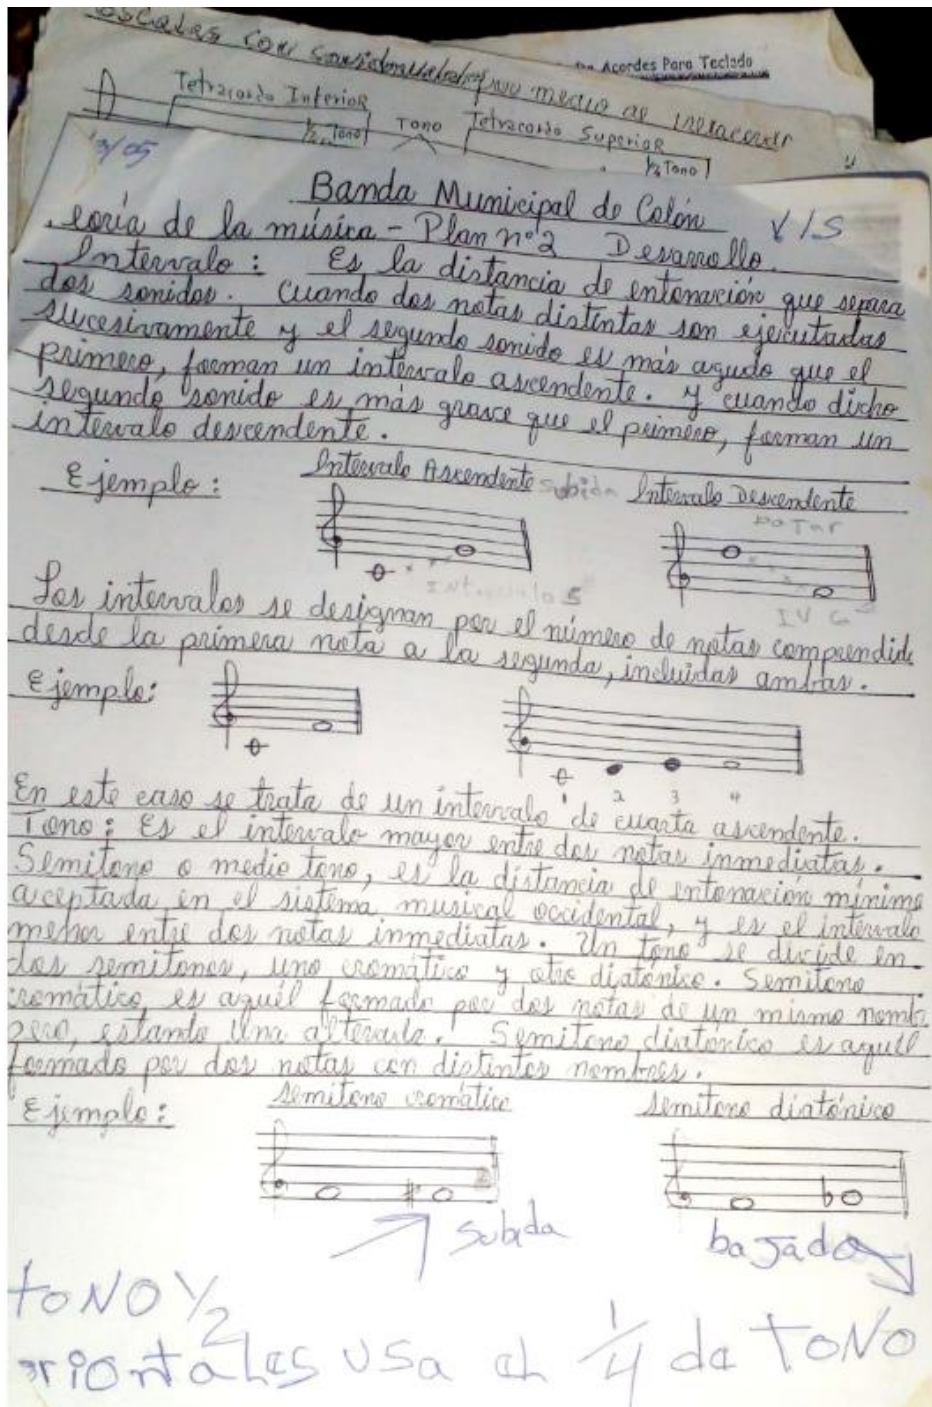 escalas con
medio de
Acordes Para Teclado
Tetracordo Inferior
½ Tono
Tono
Tetracordo Superior
½ Tono
3/05
Banda Municipal de Colón
VIS
eoría de la música - Plan nº2 Desarrollo.
Intervalo: Es la distancia de entonación que separa
dos sonidos. Cuando dos notas distintas son ejecutadas
sucesivamente y el segundo sonido es más agudo que el
primero, forman un intervalo ascendente. y cuando dicho
segundo sonido es más grave que el primero, forman un
intervalo descendente.
Ejemplo: Intervalo Ascendente subida Intervalo Descendente
bajar
Intervalo 5
IV
Los intervalos se designan por el número de notas comprendid
desde la primera nota a la segunda, incluidas ambas.
Ejemplo:
1 2 3 4
En este caso se trata de un intervalo de cuarta ascendente.
Tono: Es el intervalo mayor entre dos notas inmediatas.
Semitono o medio tono, es la distancia de entonación mínima
aceptada en el sistema musical occidental, y es el intervalo
menor entre dos notas inmediatas. Un tono se divide en
dos semitonos, uno cromático y otro diatónico. Semitono
cromático, es aquél formado por dos notas de un mismo nombr
pero, estando una alterada. Semitono diatónico es aquél
formado por dos notas con distintos nombres.
Ejemplo: Semitono cromático Semitono diatónico
subida
bajada
toNO ½
orientales usa el ¼ de toNO